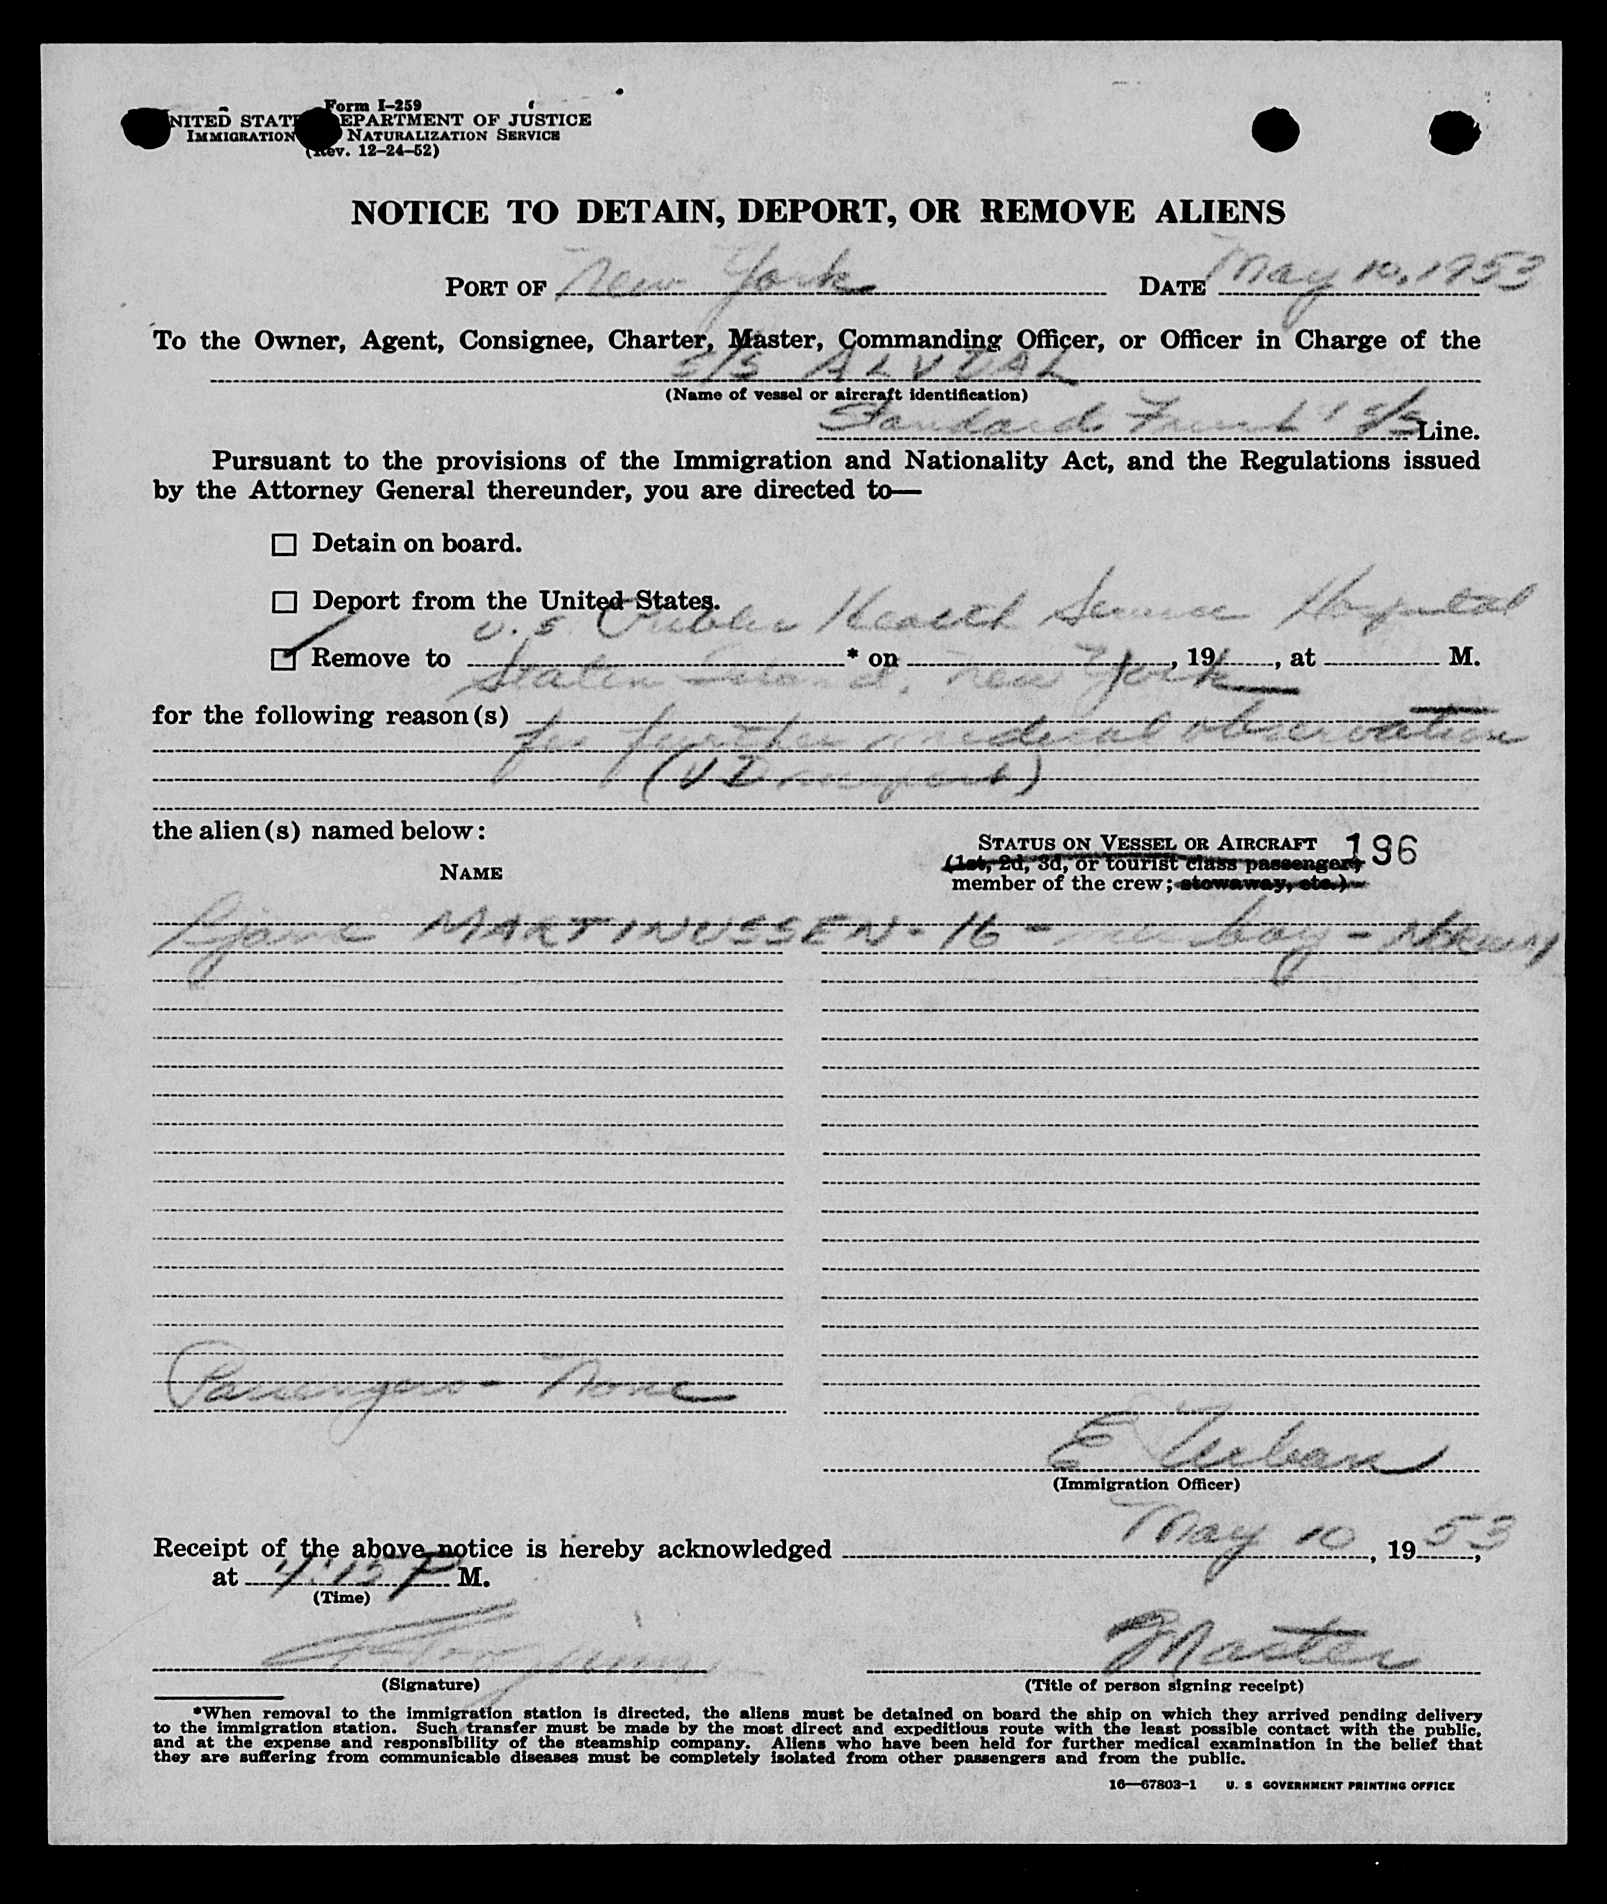 Form I-259
UNITED STATES DEPARTMENT OF JUSTICE
IMMIGRATION NATURALIZATION SERVICE
(Rev. 12-24-52)
NOTICE TO DETAIN, DEPORT, OR REMOVE ALIENS
PORT OF New York DATE May 10, 1953
To the Owner, Agent, Consignee, Charter, Master, Commanding Officer, or Officer in Charge of the
S/S ALVDAL
(Name of vessel or aircraft identification)
Standard Fruit & S/S Line.
Pursuant to the provisions of the Immigration and Nationality Act, and the Regulations issued
by the Attorney General thereunder, you are directed to—
☐ Detain on board.
☐ Deport from the United States.
U.S. Public Health Service Hospital
☑ Remove to * on , 19 , at M.
Staten Island, New York
for the following reason(s)
for further medical observation
(VD suspect)
the alien(s) named below:
STATUS ON VESSEL OR AIRCRAFT 196
(1st, 2d, 3d, or tourist class passenger;
NAME
member of the crew; stowaway, etc.)
MARTINUSSEN - 16 - boy - Norway
Passengers - None
E Urban
(Immigration Officer)
Receipt of the above notice is hereby acknowledged May 10, 1953,
at 4:15 P M.
(Time)
Master
(Signature) (Title of person signing receipt)
*When removal to the immigration station is directed, the aliens must be detained on board the ship on which they arrived pending delivery
to the immigration station. Such transfer must be made by the most direct and expeditious route with the least possible contact with the public,
and at the expense and responsibility of the steamship company. Aliens who have been held for further medical examination in the belief that
they are suffering from communicable diseases must be completely isolated from other passengers and from the public.
16—67803-1 U. S GOVERNMENT PRINTING OFFICE